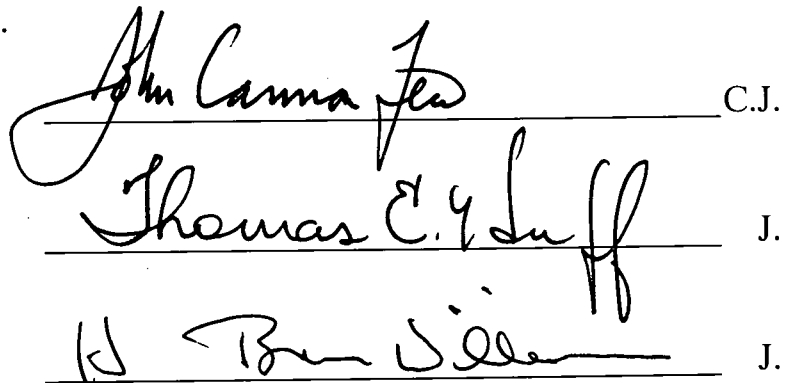 John Cannon Few C.J.
Thomas E. Huff J.
H Bruce Williams J.